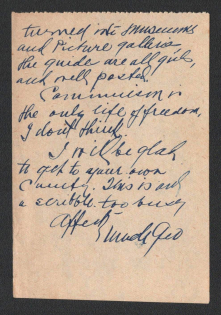 turned into museums
and Picture galleries,
the guides are all girls,
and well posted.
Communism is
the only life of freedom,
I don't think!
I will be glad
to get to your own
Country. This is only
a scribble. too busy
Affect.
Uncle Geo